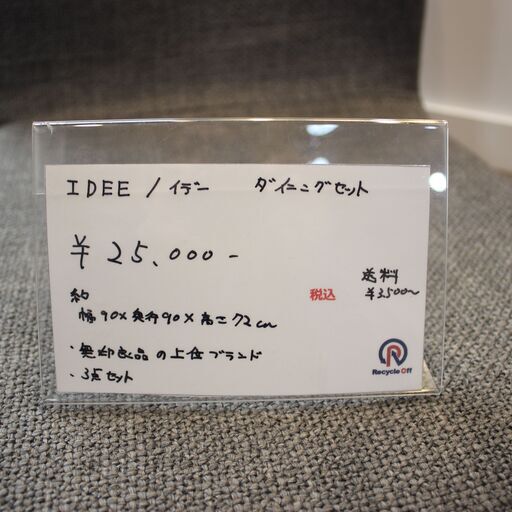 IDEE / イデー ダイニングセット
¥25,000-
送料
¥3500〜
税込
約
幅90×奥行90×高さ72cm
・無印良品の上位ブランド
・3点セット
Recycle Off